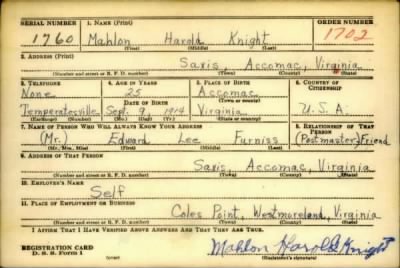 SERIAL NUMBER 1. NAME (Print) ORDER NUMBER
1760 Mahlon Harold Knight 1702
(First) (Middle) (Last)
2. ADDRESS (Print)
Saxis, Accomac, Virginia
(Number and street or R. F. D. number) (Town) (County) (State)
3. TELEPHONE 4. AGE IN YEARS 5. PLACE OF BIRTH 6. COUNTRY OF CITIZENSHIP
None 25 Accomac
(Town or county)
DATE OF BIRTH
Temperatesville Sept. 9 1914 Virginia U.S.A.
(Exchange) (Number) (Mo.) (Day) (Yr.) (State or country)
7. NAME OF PERSON WHO WILL ALWAYS KNOW YOUR ADDRESS 8. RELATIONSHIP OF THAT PERSON
(Mr.) Edward Lee Furniss (Postmaster) Friend
(Mr., Mrs., Miss) (First) (Middle) (Last)
9. ADDRESS OF THAT PERSON
Saxis, Accomac, Virginia
(Number and street or R. F. D. number) (Town) (County) (State)
10. EMPLOYER'S NAME
Self
11. PLACE OF EMPLOYMENT OR BUSINESS
Coles Point, Westmoreland, Virginia
(Number and street or R. F. D. number) (Town) (County) (State)
I AFFIRM THAT I HAVE VERIFIED ABOVE ANSWERS AND THAT THEY ARE TRUE.
REGISTRATION CARD
D. S. S. Form 1
Mahlon Harold Knight
(Registrant's signature)